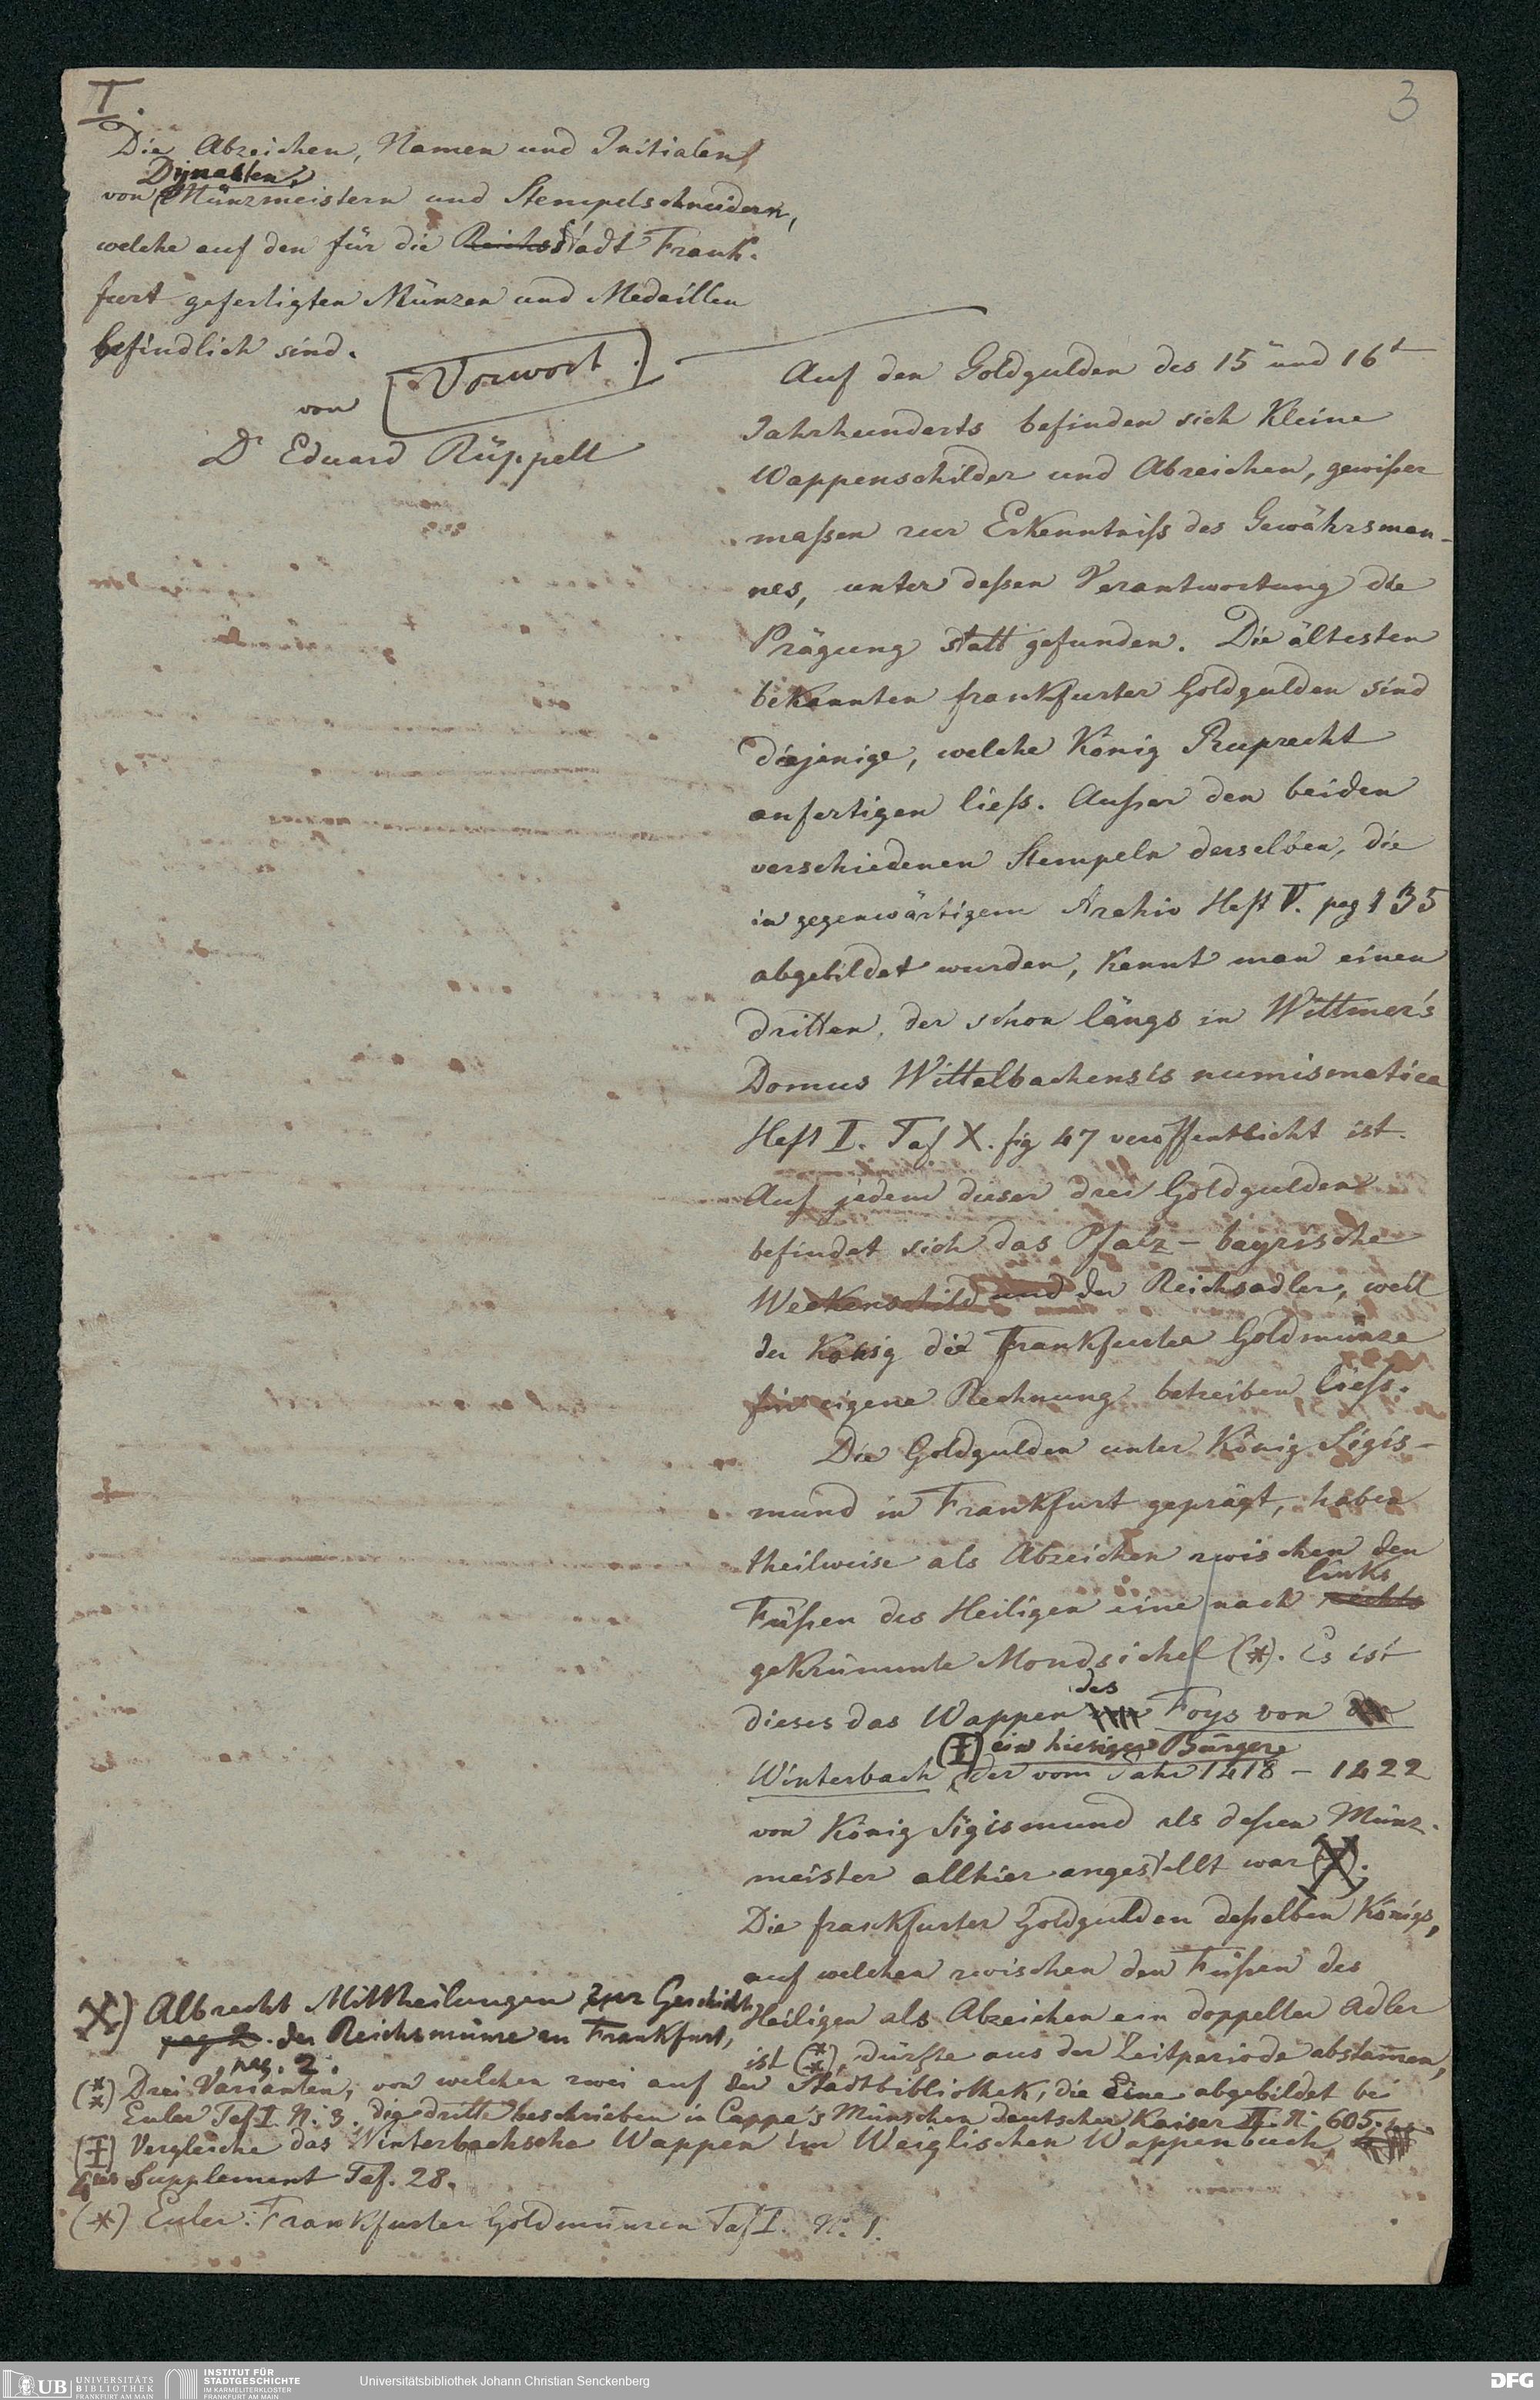 I.
3
Die Abzeichen, Namen und Initialen,
Dynasten,
von Münzmeistern und Stempelschneidern,
welche auf den für die Reichsstadt Frank-
furt gefertigten Münzen und Medaillen
befindlich sind.
von
Dr Eduard Rüppell
[Vorwort.]
Auf den Goldgulden des 15 und 16t
Jahrhunderts befinden sich kleine
Wappenschilder und Abzeichen, gewißer
maßen zur Erkenntniß des Gewährsman-
nes, unter deßen Verantwortung die
Prägung statt gefunden. Die ältesten
bekannten frankfurter Goldgulden sind
diejenige, welche König Ruprecht
anfertigen ließ. Außer den beiden
verschiedenen Stempeln derselben, die
in gegenwärtigem Archiv Heft V. pag 135
abgebildet wurden, kennt man einen
dritten, der schon längs in Wittmer's
Domus Wittelbachensis numismatica
Heft I. Taf X. fig 47 veröffentlicht ist.
Auf jedem dieser drei Goldgulden
befindet sich das Pfalz-bayrische
Weckenschild und der Reichsadler, weil
der König die Frankfurter Goldmünze
für eigene Rechnung betreiben ließ.
Die Goldgulden unter König Sigis-
mund in Frankfurt geprägt, haben
theilweise als Abzeichen zwischen den
links
Füßen des Heiligen eine nach rechts
gekrümmte Mondsichel (*). Es ist
des
dieses das Wappen Foys von der
(‡) ein hiesiger Bürger
Winterbach, der vom Jahr 1418 - 1422
von König Sigismund als deßen Münz-
meister allhier angestellt war.
Die frankfurter Goldgulden deßelben Königs,
auf welchen zwischen den Füßen des
Heiligen als Abzeichen ein doppelter Adler
ist (**), dürfte aus der Zeitperiode abstamen,
X) Albrecht Mittheilungen zur Geschicht
pag 2. der Reichsmünze zu Frankfurt,
pag. 2.
(**) Drei Varianten, von welchen zwei auf der Stadtbibliothek, die Eine abgebildet bei
Euler Taf I. N. 3. die dritte beschrieben in Cappe's Münzchen deutscher Kaiser II. N. 605.
(‡) Vergleiche das Winterbachsche Wappen im Weiglischen Wappenbuch
Supplement Taf. 28.
(*) Euler: Frankfurter Goldmünzen Taf I. N. 1.
UB UNIVERSITÄTS
BIBLIOTHEK
FRANKFURT AM MAIN
INSTITUT FÜR
STADTGESCHICHTE
IM KARMELITERKLOSTER
FRANKFURT AM MAIN
Universitätsbibliothek Johann Christian Senckenberg
DFG